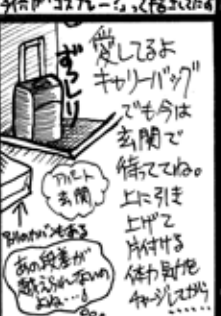 愛してるよ
キャリーバッグ
でも今は
玄関で
待っててね。
上に引き
上げて
片付ける
体力気力を
チャージしてから
ずっしり
アパート
玄関
別のカバンもある
あの段差が
越えられないの
よね…!